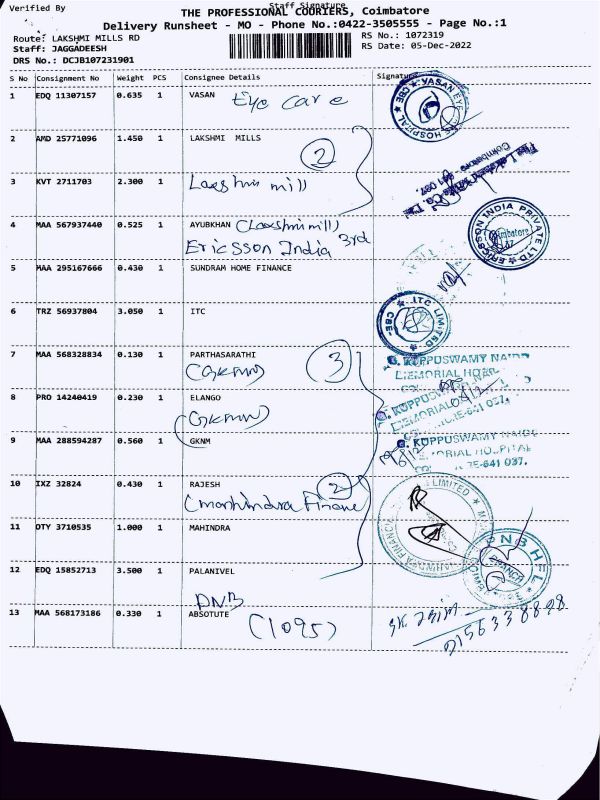 Verified By
Staff Signature
THE PROFESSIONAL COURIERS, Coimbatore
Delivery Runsheet - MO - Phone No.:0422-3505555 - Page No.:1
Route: LAKSHMI MILLS RD
RS No.: 1072319
Staff: JAGGADEESH
RS Date: 05-Dec-2022
DRS No.: DCJB107231901
S No Consignment No Weight PCS Consignee Details Signature
1 EDQ 11307157 0.635 1 VASAN Eye care
2 AMD 25771096 1.450 1 LAKSHMI MILLS
2
3 KVT 2711703 2.300 1 Laxshmi mill
4 MAA 567937440 0.525 1 AYUBKHAN (Laxshmi mill)
Ericsson India 3rd
5 MAA 295167666 0.430 1 SUNDRAM HOME FINANCE
6 TRZ 56937804 3.050 1 ITC
7 MAA 568328834 0.130 1 PARTHASARATHI
(GKNM)
3
8 PRO 14240419 0.230 1 ELANGO
(GKNM)
9 MAA 288594287 0.560 1 GKNM
10 IXZ 32824 0.430 1 RAJESH
2
(mahindra Finance
11 OTY 3710535 1.000 1 MAHINDRA
12 EDQ 15852713 3.500 1 PALANIVEL
PNB
13 MAA 568173186 0.330 1 ABSOTUTE
(1095)
VASAN EYE
HOSPITAL
CBE
Coimbatore
641 037.
ERICSSON INDIA PRIVATE LTD
Coimbatore
ITC LIMITED
CBE-
G. KUPPUSWAMY NAIDU
MEMORIAL HOSPITAL
G. KUPPUSWAMY NAIDU
MEMORIAL
641 037.
G. KUPPUSWAMY NAIDU
MEMORIAL HOSPITAL
641 037.
LIMITED
PNBHFL
BRANCH